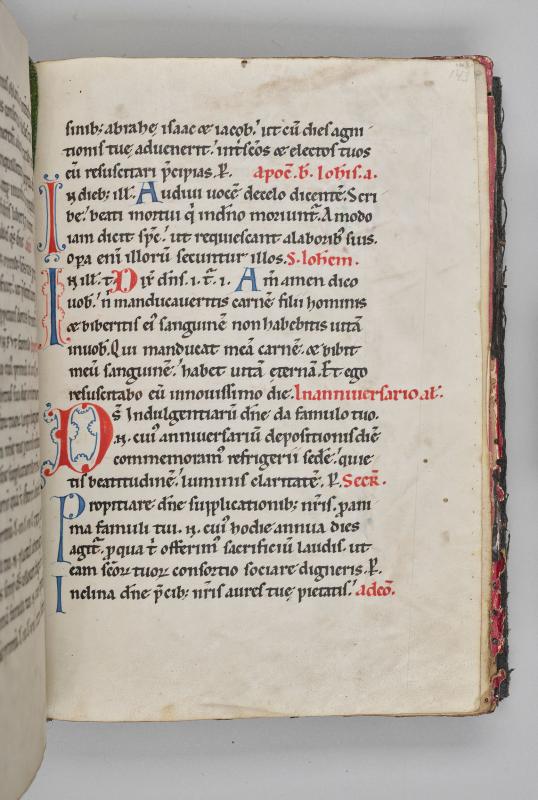 sinib; abrahę isaac & iacob. ut cū dies agni
tionis tuę aduenerit. int̄ scōs & electos tuos
cū resuscitari p̄cipias. P. apoc̄. b. Ioh̄is. a.
In dieb; ill̄. Audiui uocē de celo dicentē. Scri
be. beati mortui q̄ in dn̄o moriunt̄. Amodo
iam dicit sp̄c. ut requiescant a laborib; suis.
Opa eni᷒ illorū secuntur illos. S. Ioh̄em.
In ill̄. t. Dix̄ dn̄s. i. t̄. i. Am̄ amen dico
uob̄. n̄ manducaueritis carnē filii hominis
& biberitis ei᷒ sanguinē non habebitis uitā
in uob̄. Qui manducat meā carnē. & bibit
meū sanguinē. habet uitā eternā. Et ego
resuscitabo eū in nouissimo die. In anniuersario al̄.
Ds̄ Indulgentiarū dn̄e da famulo tuo.
.N. cui᷒ anniuersariū depositionis diē
commemoram᷒ refrigerii sedē. quie
tis beatitudinē. luminis claritatē. P. Secr̄.
Propitiare dn̄e supplicationib; nr̄is. p ani
ma famuli tui. N. cui᷒ hodie annua dies
agit̄. p qua t̄ offerim᷒ sacrificiū laudis. ut
eam scōꝝ tuoꝝ consortio sociare digneris. P.
Inclina dn̄e p̄cib; nr̄is aures tuę pietatis. ad cō.